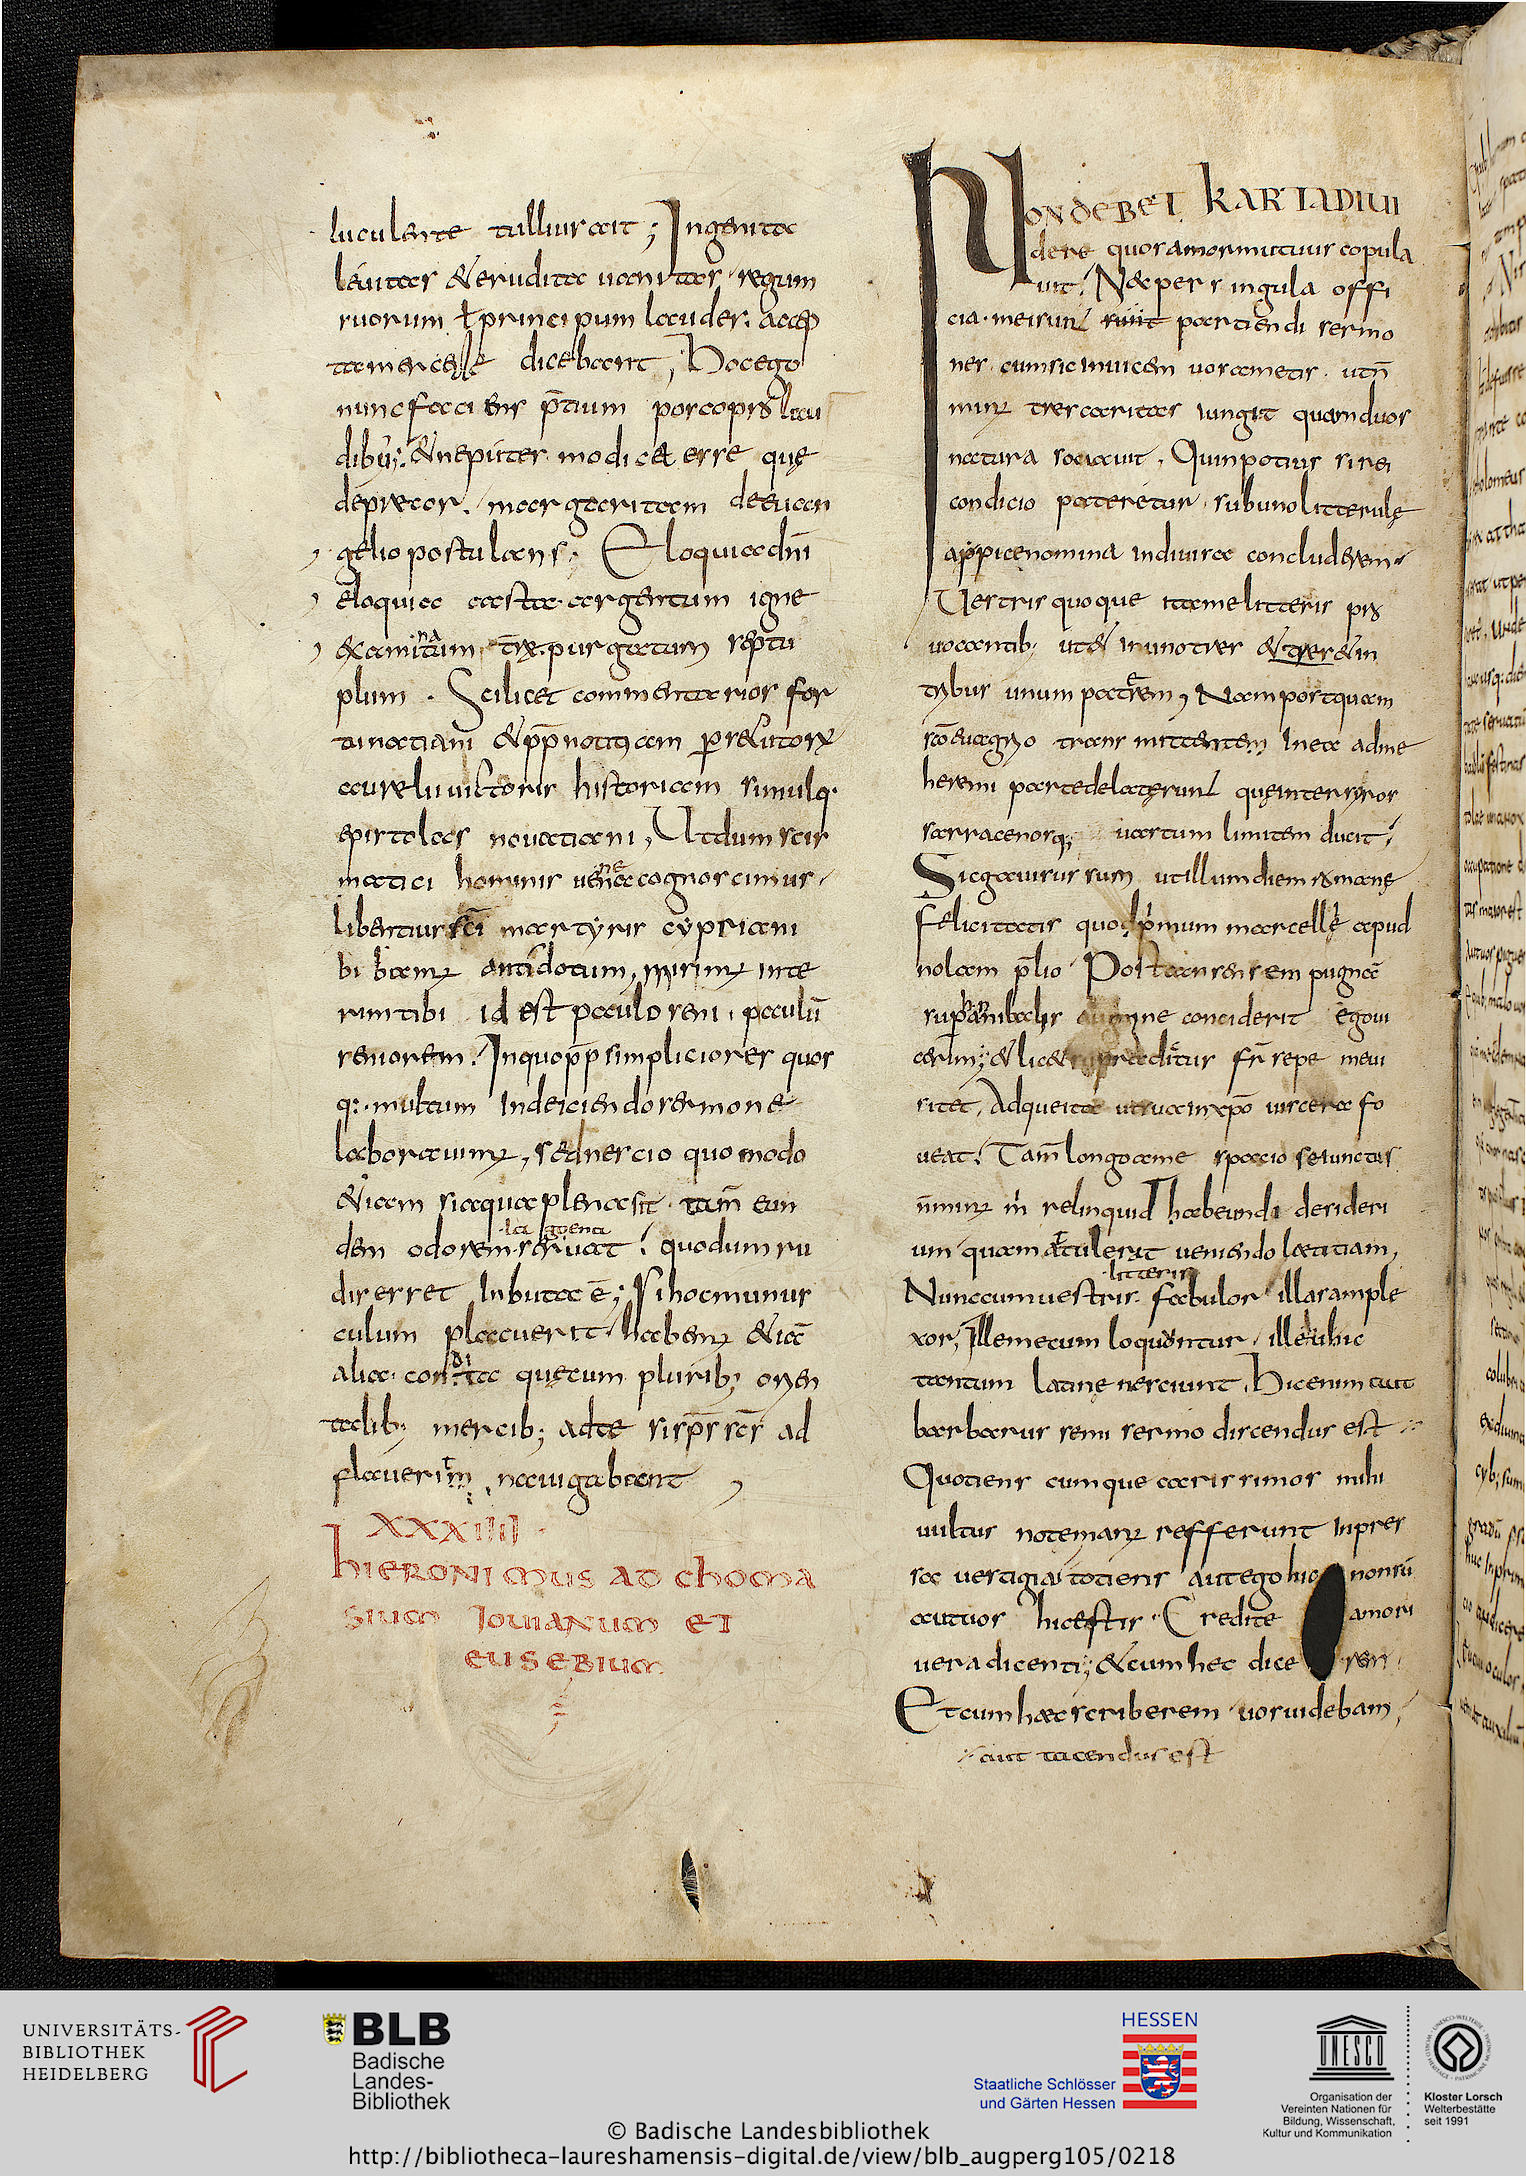 luculente tulliusait; Ingenitas
lautas & erudita uanitas regum
suorum ł principum laudes. accep
tamen esse dicebant, Hocego
nunc faciens p̄tium poscopr̄s lau
dibus; & ne putes modicaesse quę
deprecor. margaritam deeuan
gelio postulans; Eloquia dn̄i
eloquia casta argentum igne
examinatum, trę purgatum septu
plum. Scilicet commentarios for
tunatiani & pp̄ notitiam p̄secutorum
aureliuictoris historiam simulq.
epistolas nouatiani, Utdum scis
matici hominis uenena cognoscimus.
libentius sc̄i martyris cypriani
bibamus antidotum, misimus inte
rimtibi id est paulo seni, paulū
seniorem. Inquo pp̄ simpliciores quos
q;. multum Indeiciendo sermone
laborauimus, sednescio quomodo
& iam siaqua plena sit. tam̄ eun
dem odorem seruat laguena quodum ru
dis esset Inbuta ē; Si hoc munus
culum placuerit habemus & iā
alia condita quęcum plurib; orien
talib; mercib; adte sisp̄s sc̄s ad
flauerit, nauigabunt
XXXIIII.
HIERONIMUS AD CHOMA
SIUM IOUIANUM ET
EUSEBIUM
NON DEBET KARTADIUI
dere quosamormutuus copula
uit. Necpersingula offi
cia. meisunt partiendi sermo
nes. cumsicinuicem uosametis. utn̄
minus tres caritas iungit quamduos
natura sociauit. Quinpotius sirei
condicio pateretur. subuno litterulę
appicenomina indiuisa concluderem.
Uestris quoque itame litteris p̄s
uocantib; ut & inunotres & tres & in
tribus unum patrem, Nam postquam
sc̄o euagrio transmittentem Inea adme
heremi partedelatęsunt quęintersyros
sarracenosq; uastum limitem ducit.
Sicgauisus sum utillumdiem romanę
felicitatis quo primum marcellę apud
nolam p̄lio Postcannensem pugnā
agmine conciderit Egoui
cerim; & licet supradictus fr̄ sepe meui
sitet, Adqueita utsuainxp̄o uiscera fo
ueat. Tam̄ longoame spacio seiunctus
n̄minus m̄ relinquid habeundi desideri
um quam attulerit ueniendo laetitiam,
Nunccumuestris litteris fabulor illasample
xor, Illemecum loquntur. illęhic
tantum Latine nesciunt. Hicenim aut
barbarus seni sermo discendus est
Quotiens cumque carissimos mihi
uultus notęmanus refferunt Inpres
sa uestigia totiens autegohic nonsū
autuos hicestis. Credite amori
ueradicenti; & cumhec dice rem.
Et cum hęcscriberem uosuidebam,
aut tacendus est
UNIVERSITÄTS-
BIBLIOTHEK
HEIDELBERG
BLB
Badische
Landes-
Bibliothek
HESSEN
Staatliche Schlösser
und Gärten Hessen
UNESCO
Organisation der
Vereinten Nationen für
Bildung, Wissenschaft,
Kultur und Kommunikation
Kloster Lorsch
Welterbestätte
seit 1991
© Badische Landesbibliothek
http://bibliotheca-laureshamensis-digital.de/view/blb_augperg105/0218